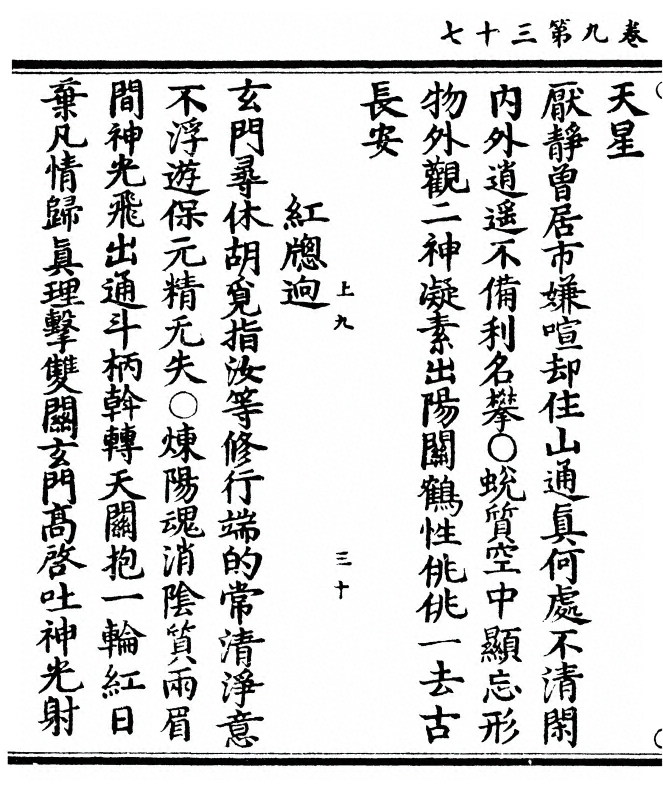 七十三第九卷
天星
厭靜曾居市嫌喧却住山通眞何處不清閑
內外逍遥不備利名攀〇蛻質空中顯忘形
物外觀二神凝素出陽關鶴性佻佻一去古
長安
上九 三十
紅牎逈
玄門尋休胡覓指汝等修行端的常清淨意
不浮遊保元精无失〇煉陽魂消陰質兩眉
間神光飛出通斗柄斡轉天關抱一輪紅日
棄凡情歸眞理擊雙關玄門髙啓吐神光射